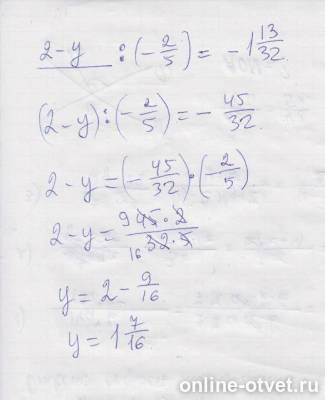 2-y : (-2/5) = -1 13/32
(2-y) : (-2/5) = -45/32
2-y = (-45/32) · (-2/5)
2-y = 9 45 · 2 / 16 32 · 5
y = 2 - 9/16
y = 1 7/16
online-otvet.ru